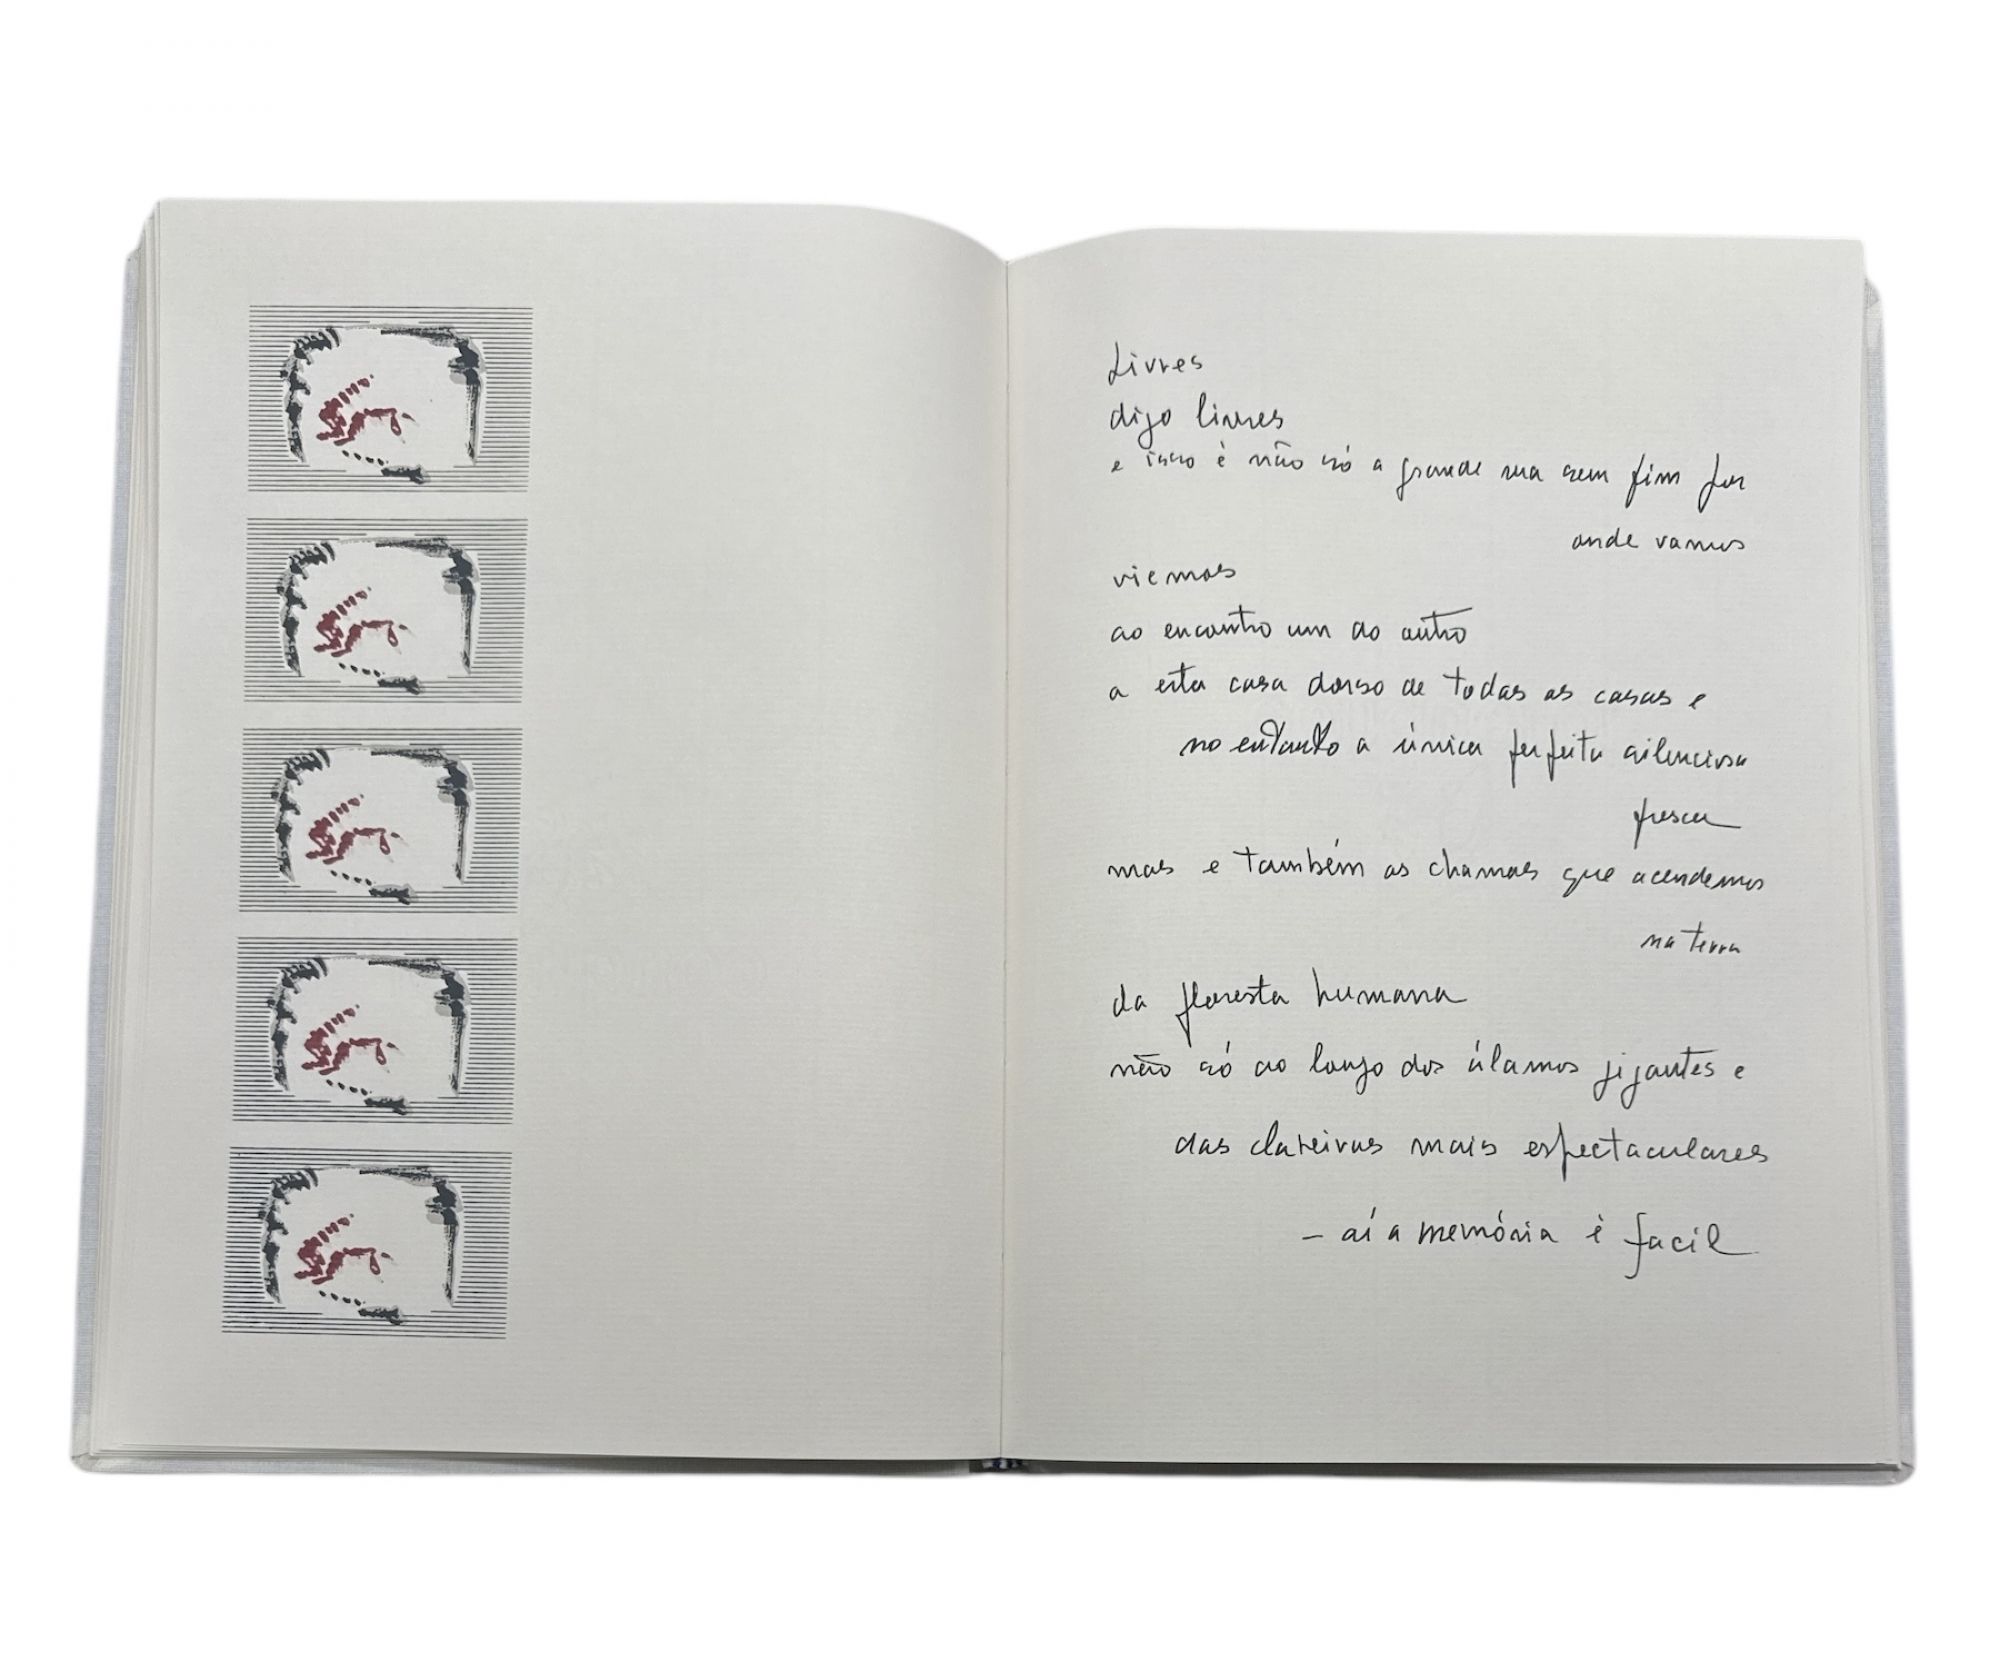 Livres
digo livres
e isso é não só a grande rua sem fim por
onde vamos
viemos
ao encontro um do outro
a esta casa dorso de todas as casas e
no entanto a única perfeita silenciosa
fresca
mas e também as chamas que acendemos
na terra
da floresta humana
não só ao longo dos úlamos gigantes e
das clareiras mais espectaculares
– aí a memória é facil